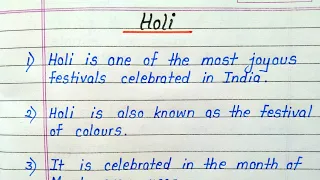 Holi
1) Holi is one of the most joyous
festivals celebrated in India.
2) Holi is also known as the festival
of colours.
3) It is celebrated in the month of